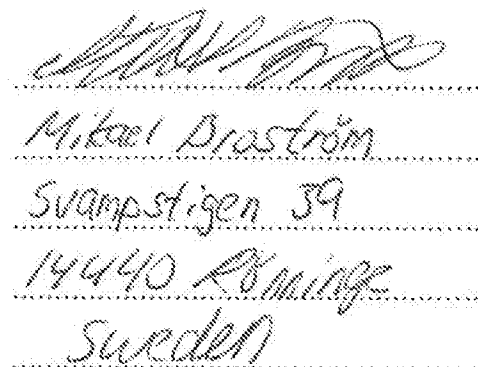 Mikael Braström
Svampstigen 39
14440 Röminge
Sweden